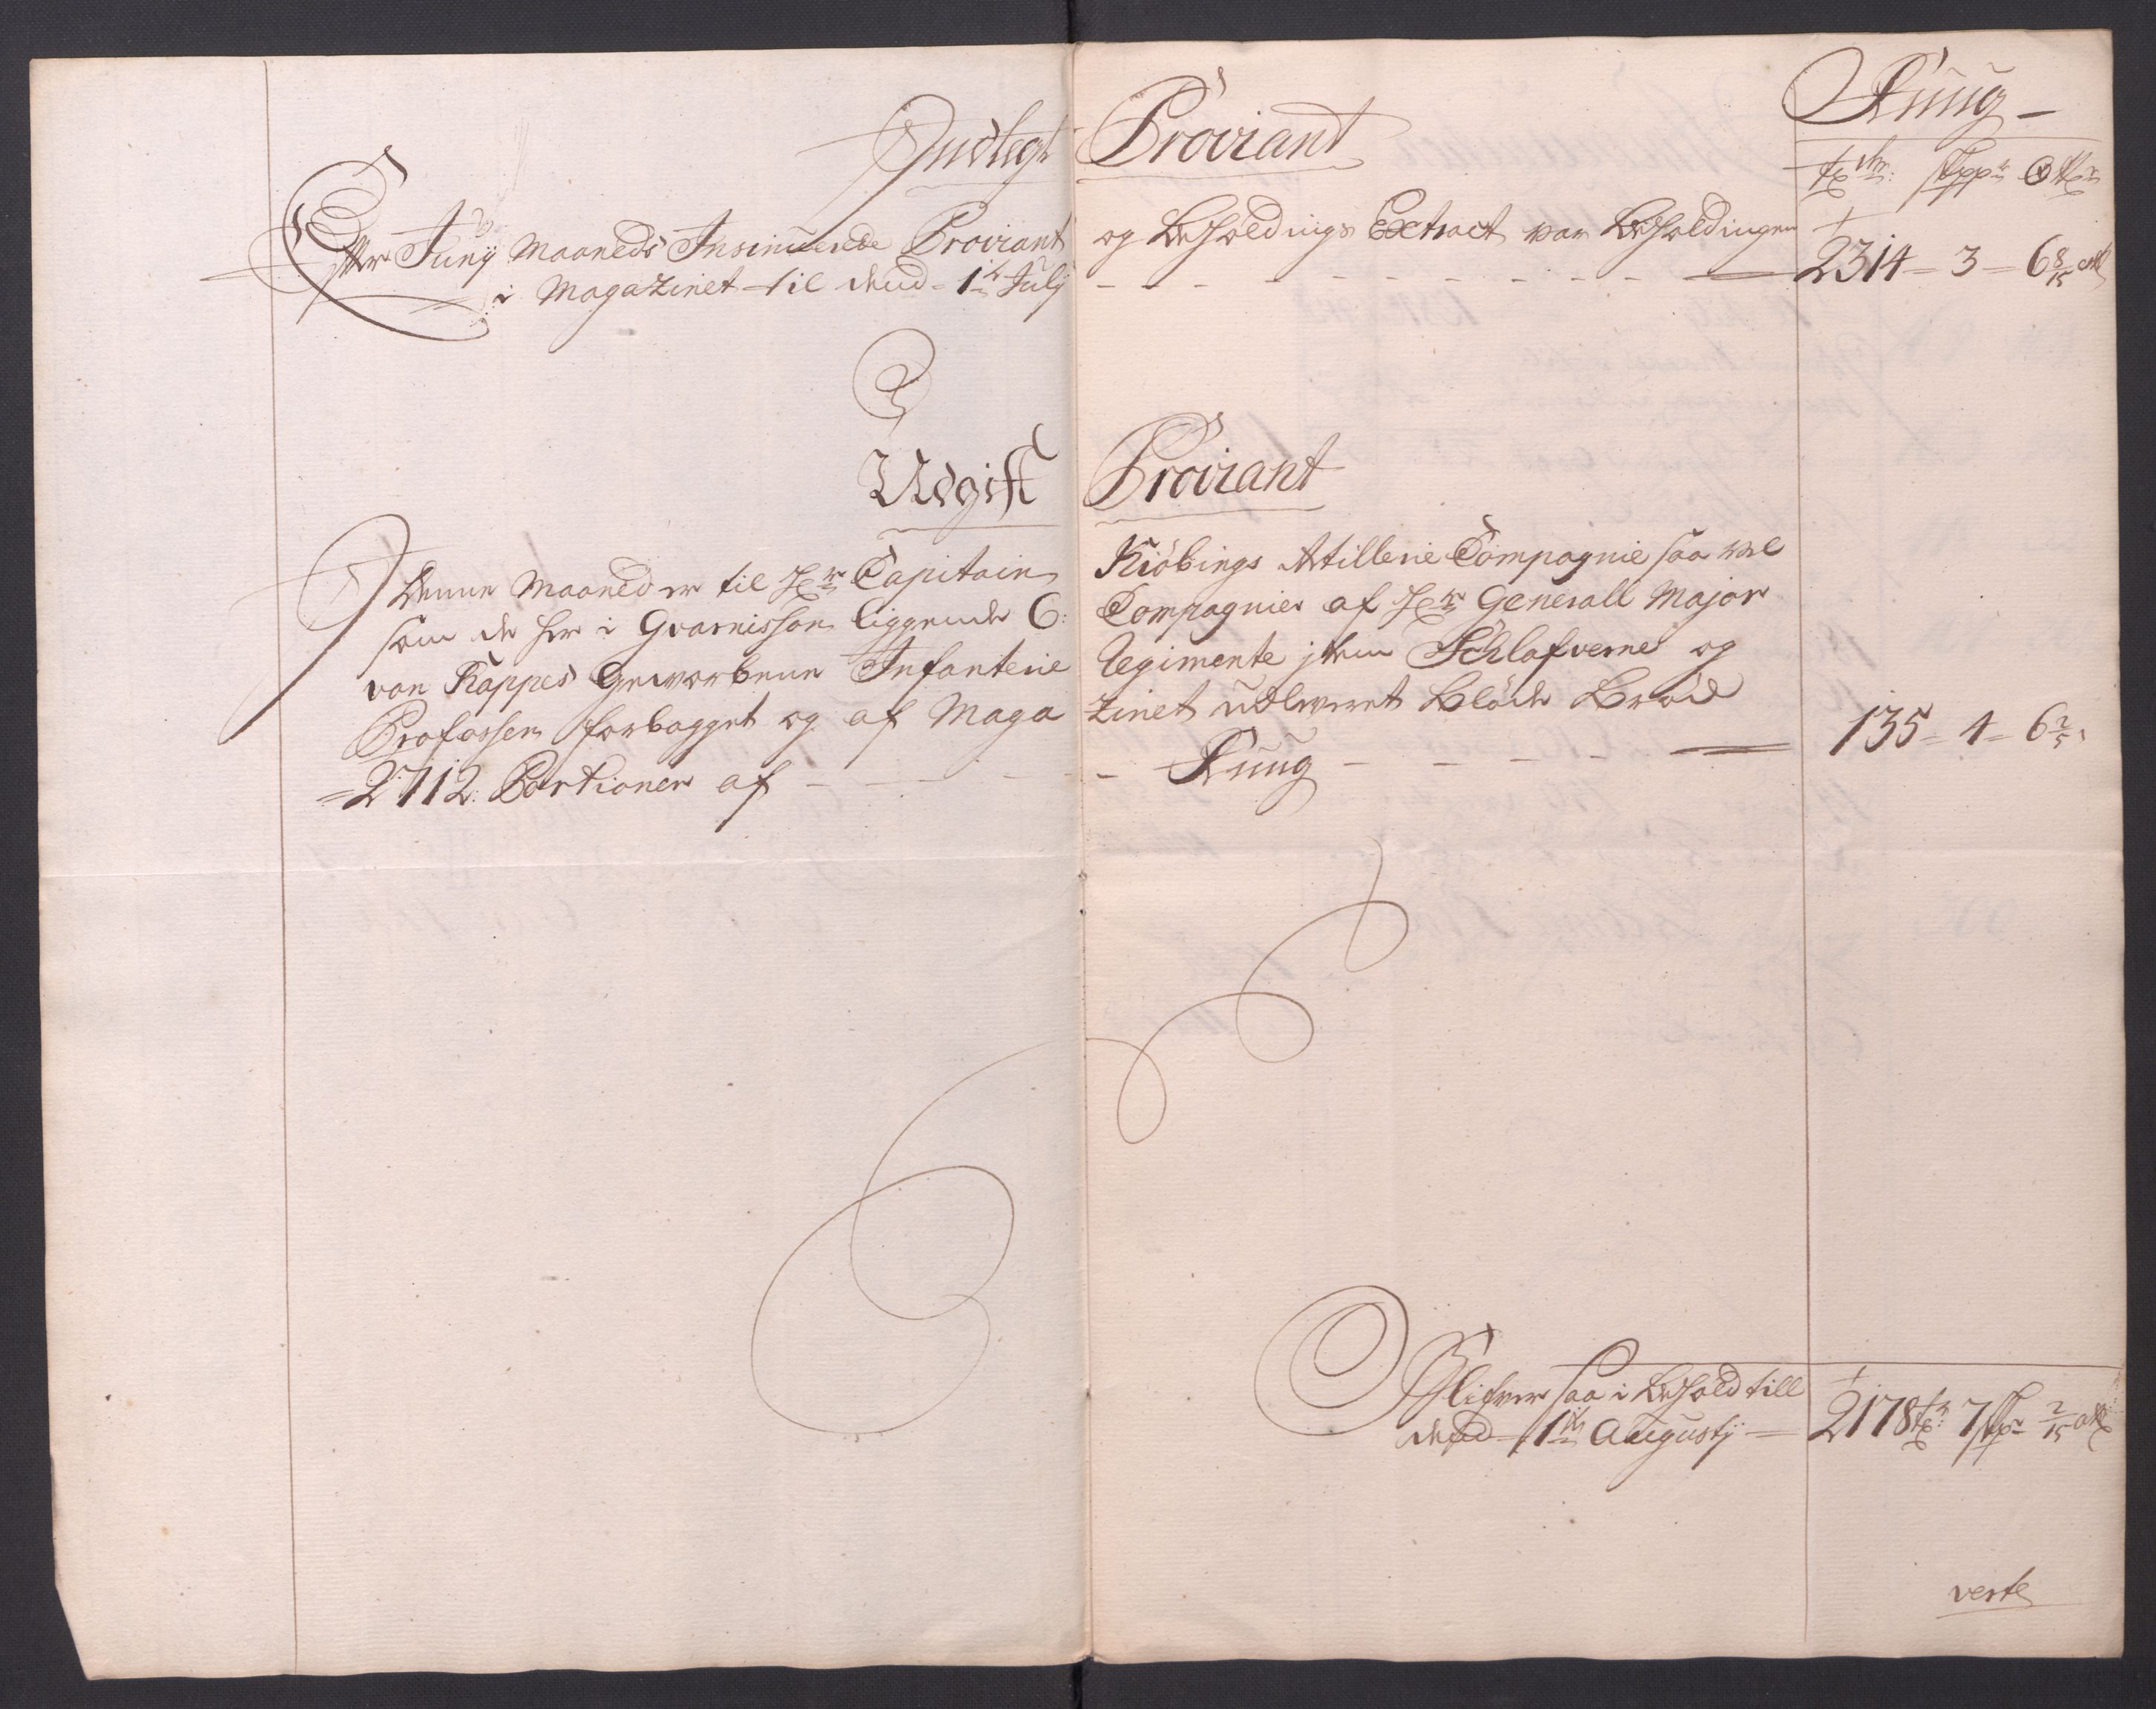 Indlegt Proviant
Ruug
tdr: skppr Otkr
Efter Junij Maaneds Insinuerede Proviant og Beholdnings Extract var Beholdingen
i Magazinet til dend 1te Julij 2314 = 3 = 6 8/15 otk
Udgift Proviant
I denne Maaned er til Hr Capitain Kiöbings Artillerie Compagnie saa vel
som de her i Guarnisson liggende 6: Compagnier af Hr General Major
von Kappes Gevorbene Infanterie Regimente jtem Schlafverne og
Profossen forbagget og af Maga zinet udleveret blöde Bröd
= 2712: Portioner af Ruug 135 = 4 = 6 2/5
Blifver saa i behold till
dend 1te Augustj = 2178 tr: 7 skpr 2/15 otk
verte